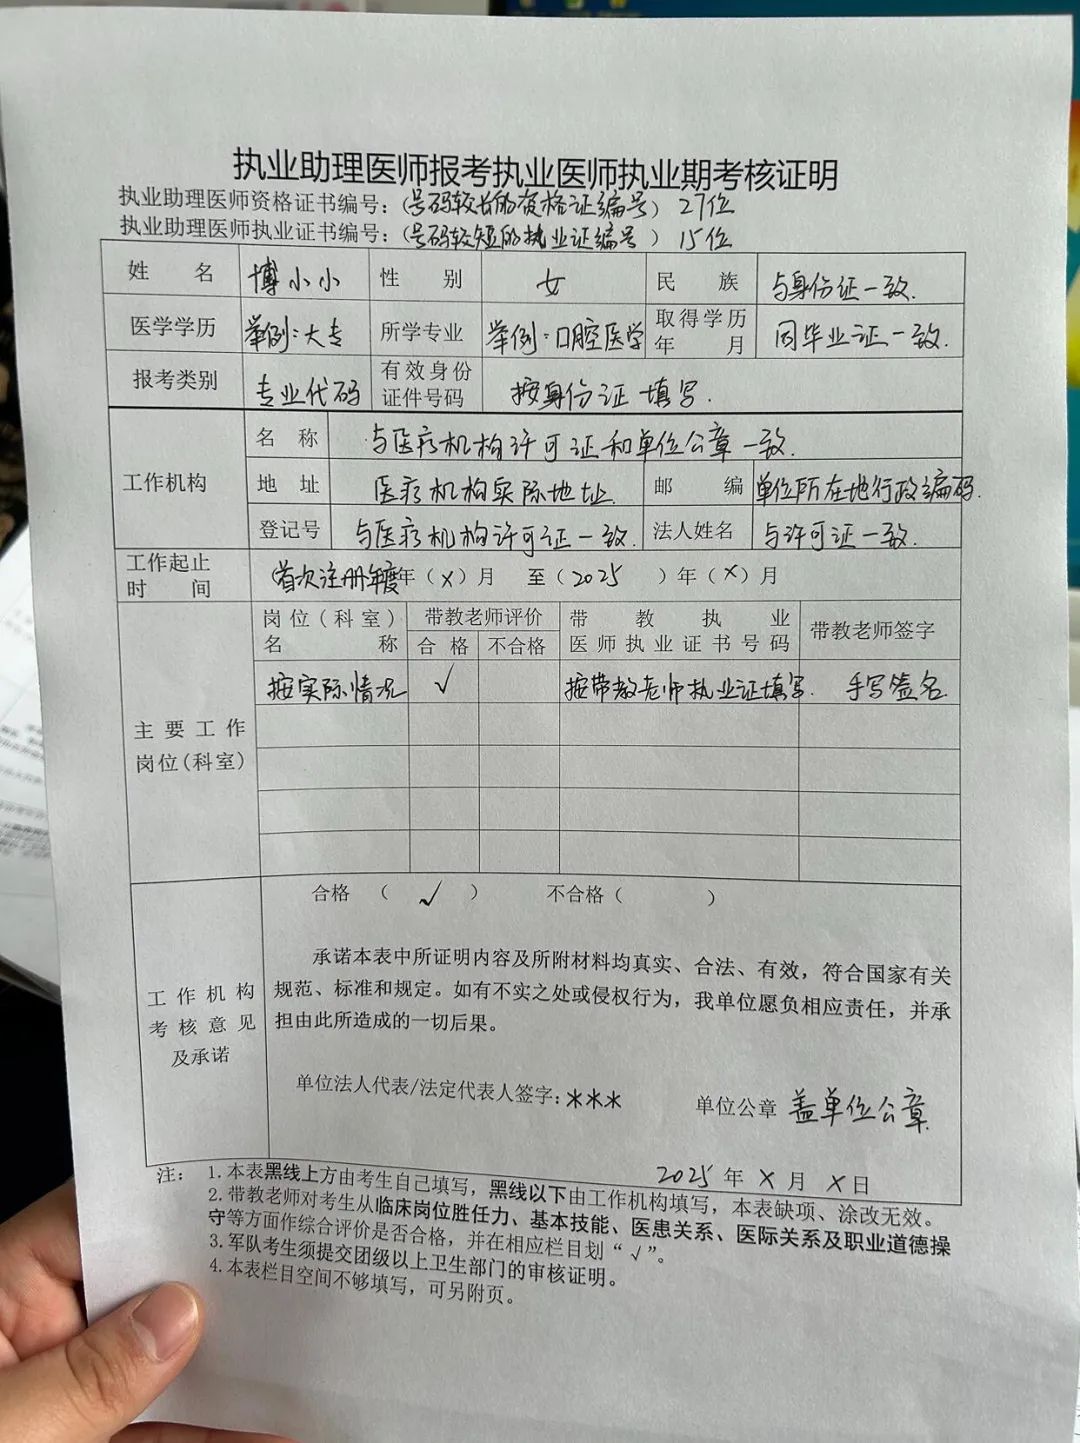 执业助理医师报考执业医师执业期考核证明
执业助理医师资格证书编号：（号码较长的资格证编号）27位
执业助理医师执业证书编号：（号码较短的执业证编号）15位
姓 名 博小小 性 别 女 民 族 与身份证一致.
医学学历 举例：大专 所学专业 举例：口腔医学 取得学历年 月 同毕业证一致.
报考类别 专业代码 有效身份证件号码 按身份证填写.
工作机构
名 称 与医疗机构许可证和单位公章一致.
地 址 医疗机构实际地址 邮 编 单位所在地行政编码.
登记号 与医疗机构许可证一致. 法人姓名 与许可证一致.
工作起止时 间 首次注册年度年（X）月 至（2025 ）年（X）月
主要工作岗位(科室)
岗位(科室)名 称 带教老师评价 合格 不合格 带教执业医师执业证书号码 带教老师签字
按实际情况 √ 按带教老师执业证填写. 手写签名
工作机构考核意见及承诺
合格 （ √ ） 不合格（ ）
承诺本表中所证明内容及所附材料均真实、合法、有效，符合国家有关
规范、标准和规定。如有不实之处或侵权行为，我单位愿负相应责任，并承
担由此所造成的一切后果。
单位法人代表/法定代表人签字：*** 单位公章 盖单位公章.
2025 年 X 月 X 日
注： 1.本表黑线上方由考生自己填写，黑线以下由工作机构填写，本表缺项、涂改无效。
2.带教老师对考生从临床岗位胜任力、基本技能、医患关系、医际关系及职业道德操
守等方面作综合评价是否合格，并在相应栏目划“√”。
3.军队考生须提交团级以上卫生部门的审核证明。
4.本表栏目空间不够填写，可另附页。